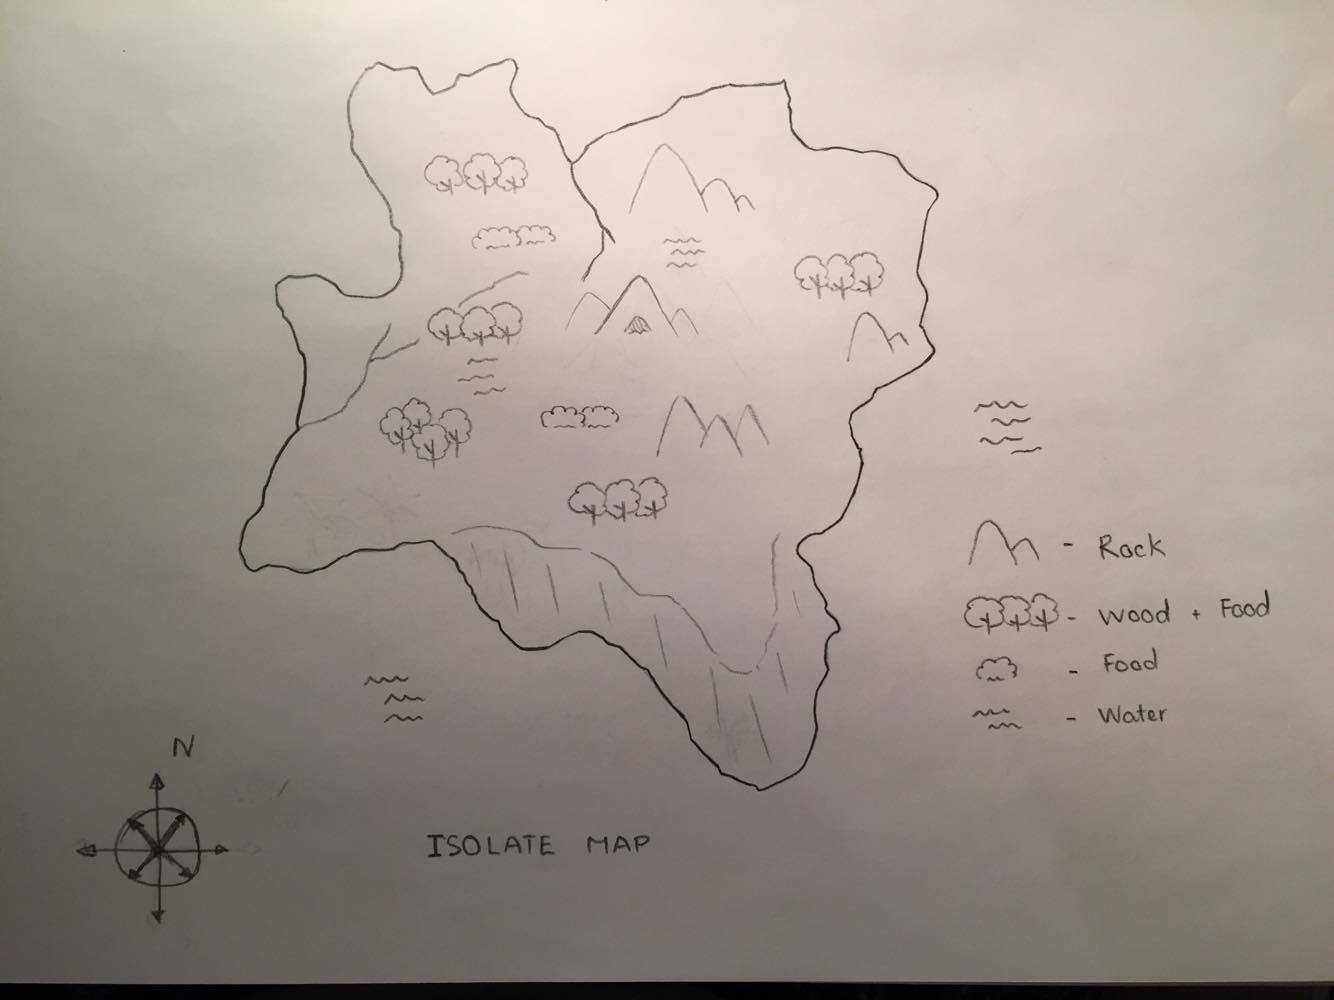 - Rock
- Wood + Food
- Food
- Water
N
ISOLATE MAP